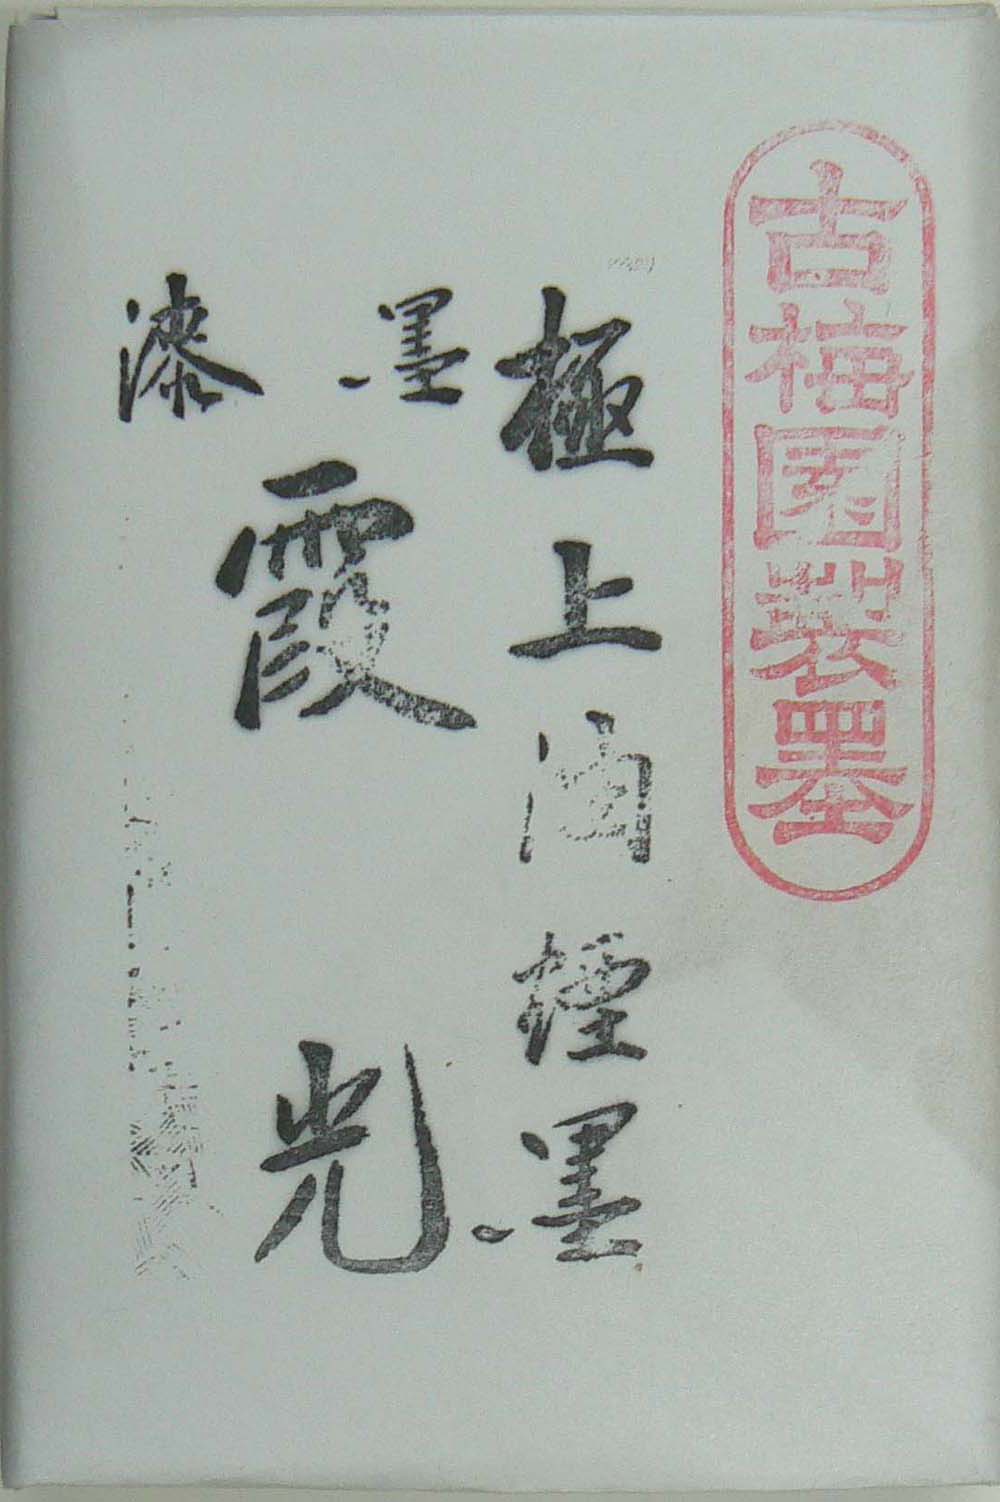 古梅園製墨
極上油煙墨
墨
霞光
漆